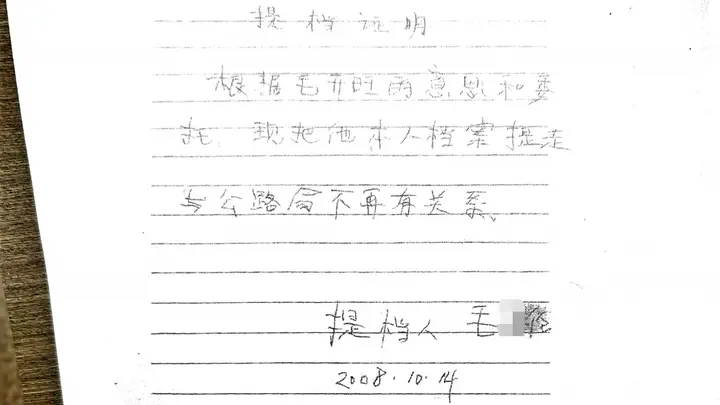 提档证明
根据毛开旺的意思和委
托 现把他本人档案提走
与公路局不再有关系。
提档人 毛
2008.10.14